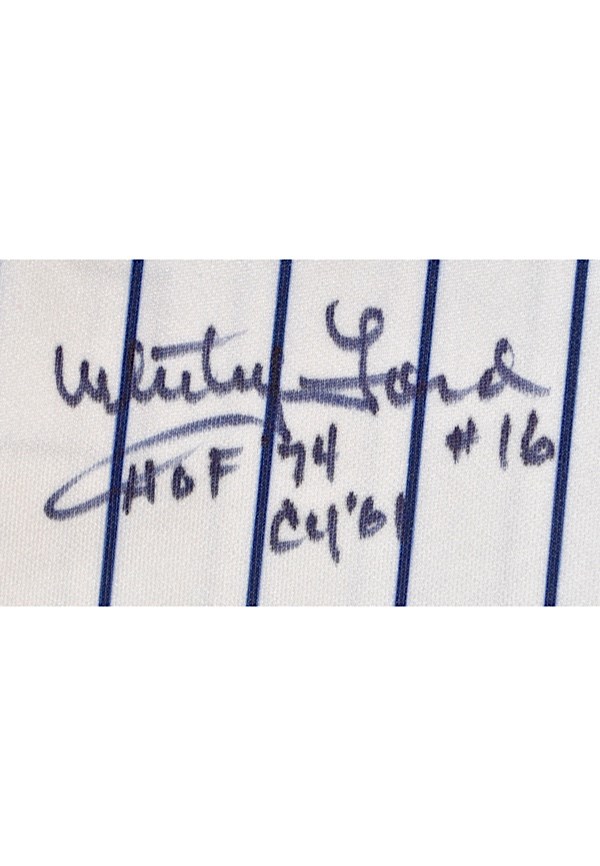 Whitey Ford
HOF '74 #16
CY '61